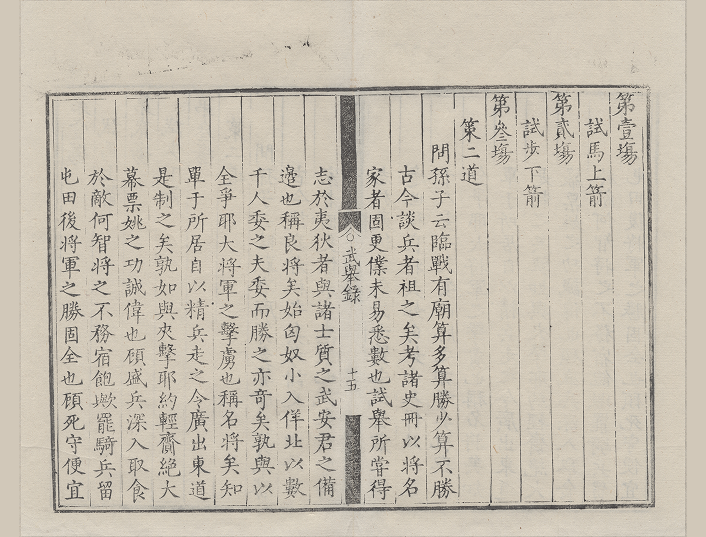 第壹場
試馬上箭
第貳場
試步下箭
第叄場
策二道
問孫子云臨戰有廟算多算勝少算不勝
古今談兵者祖之矣考諸史冊以將名
家者固更僕未易悉數也試舉所嘗得
武舉錄
十五
志於夷狄者與諸士質之武安君之備
邉也稱良將矣始匈奴小入佯北以數
千人委之夫委而勝之亦奇矣孰與以
全爭耶大將軍之擊虜也稱名將矣知
單于所居自以精兵走之令廣出東道
是制之矣孰如與夾擊耶約輕齎絕大
幕票姚之功誠偉也頋盛兵深入取食
於敵何智將之不務宿飽歟罷騎兵留
屯田後將軍之勝固全也頋死守便宜